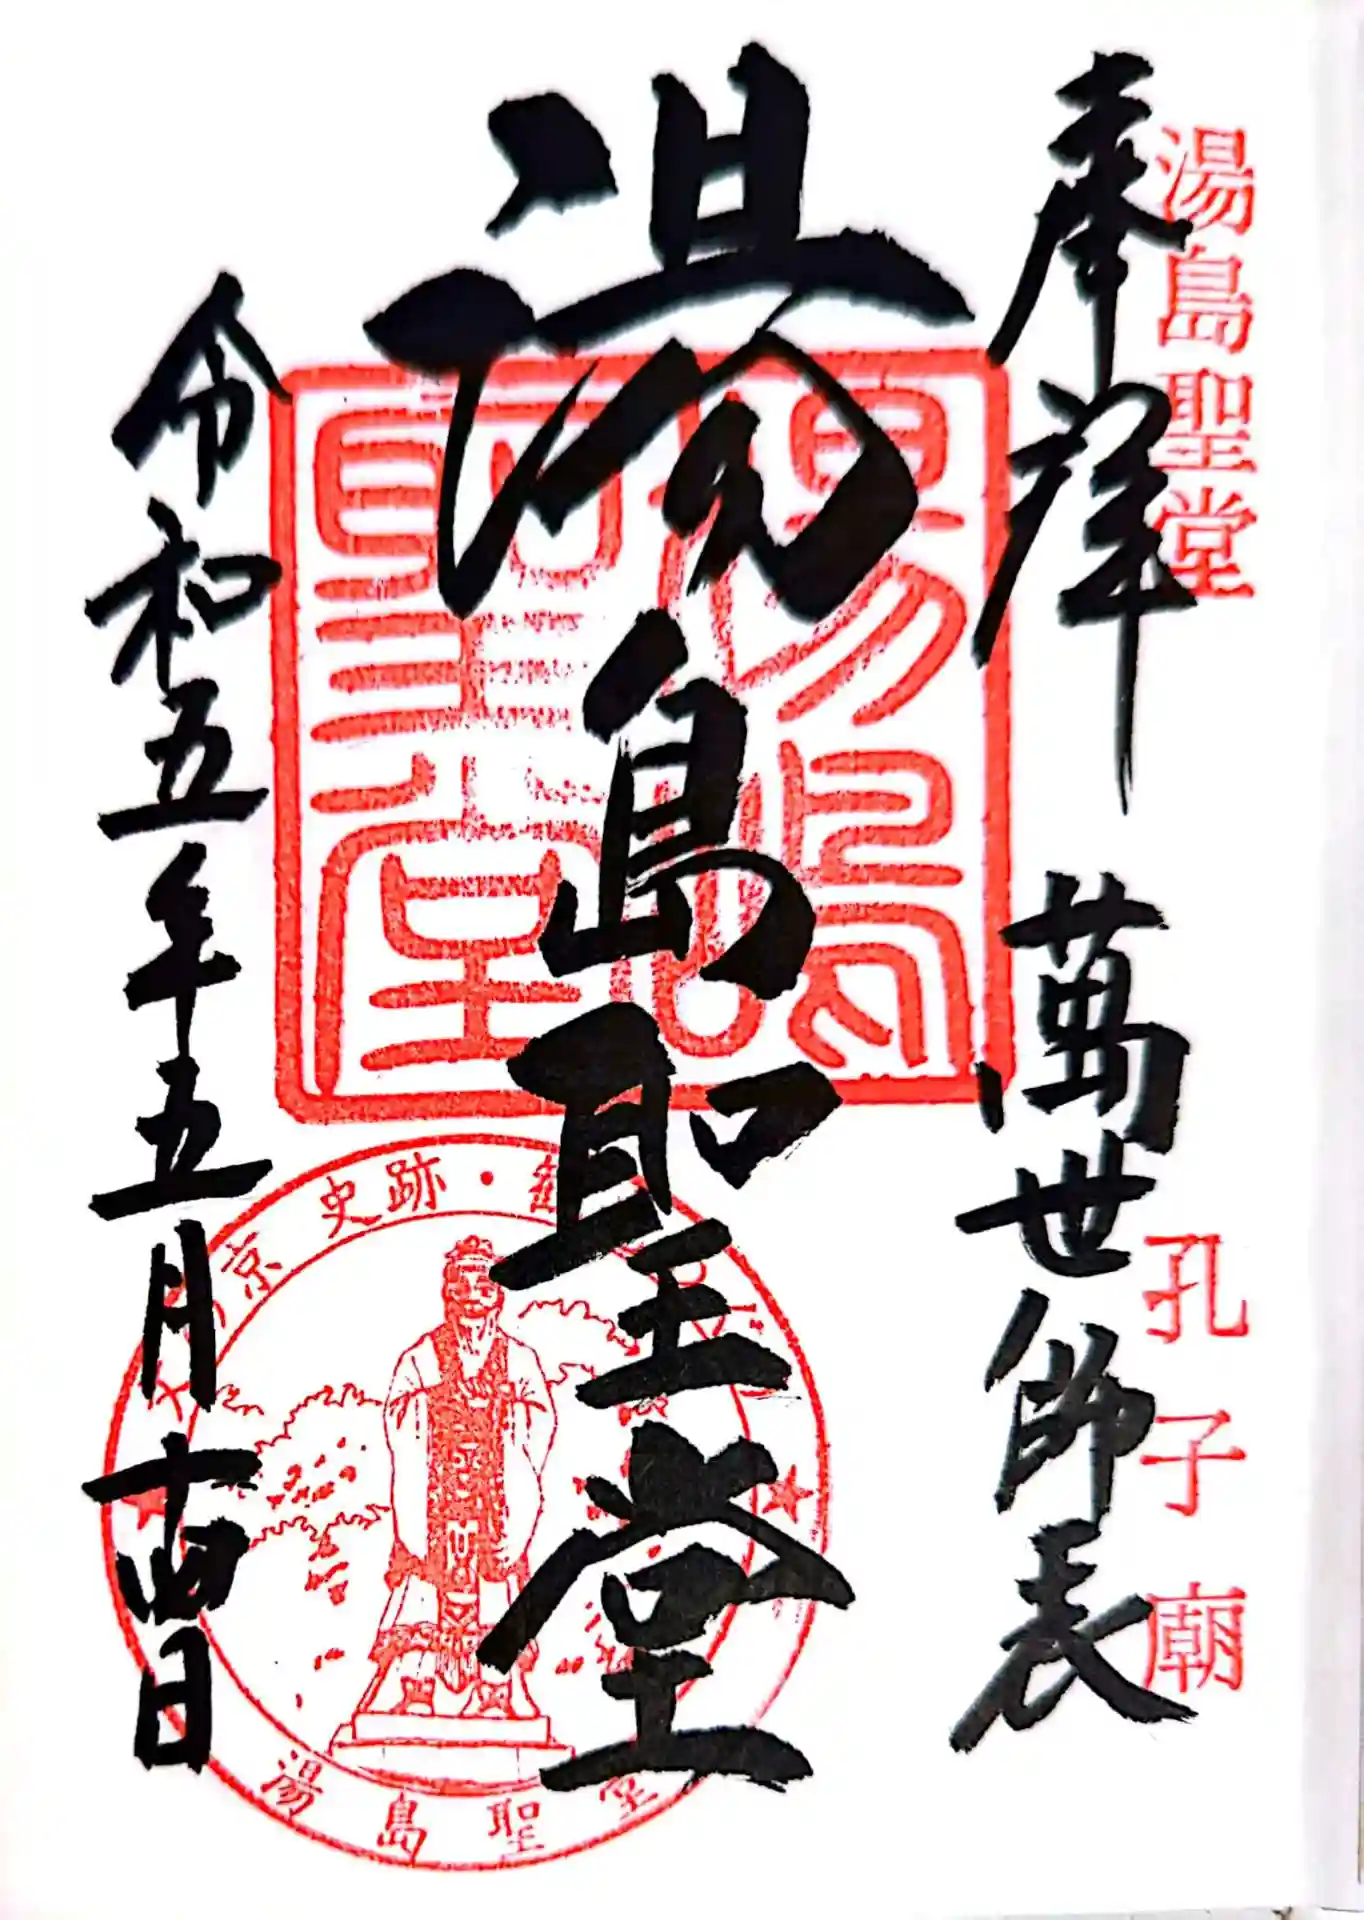 湯島聖堂
孔子廟
奉拝
萬世師表
湯島聖堂
湯島聖堂
令和五年五月十四日
京 史跡・
湯島聖堂